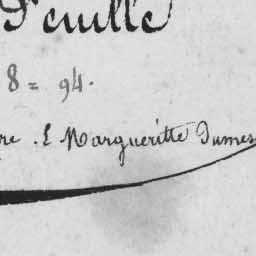 Feuille
8 = 94.
re . E Margueritte Dumes